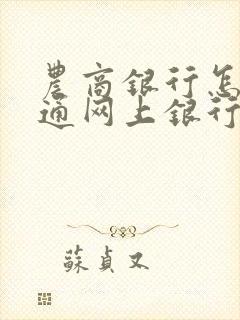 農商银行怎
通网上银行
蘇貞又